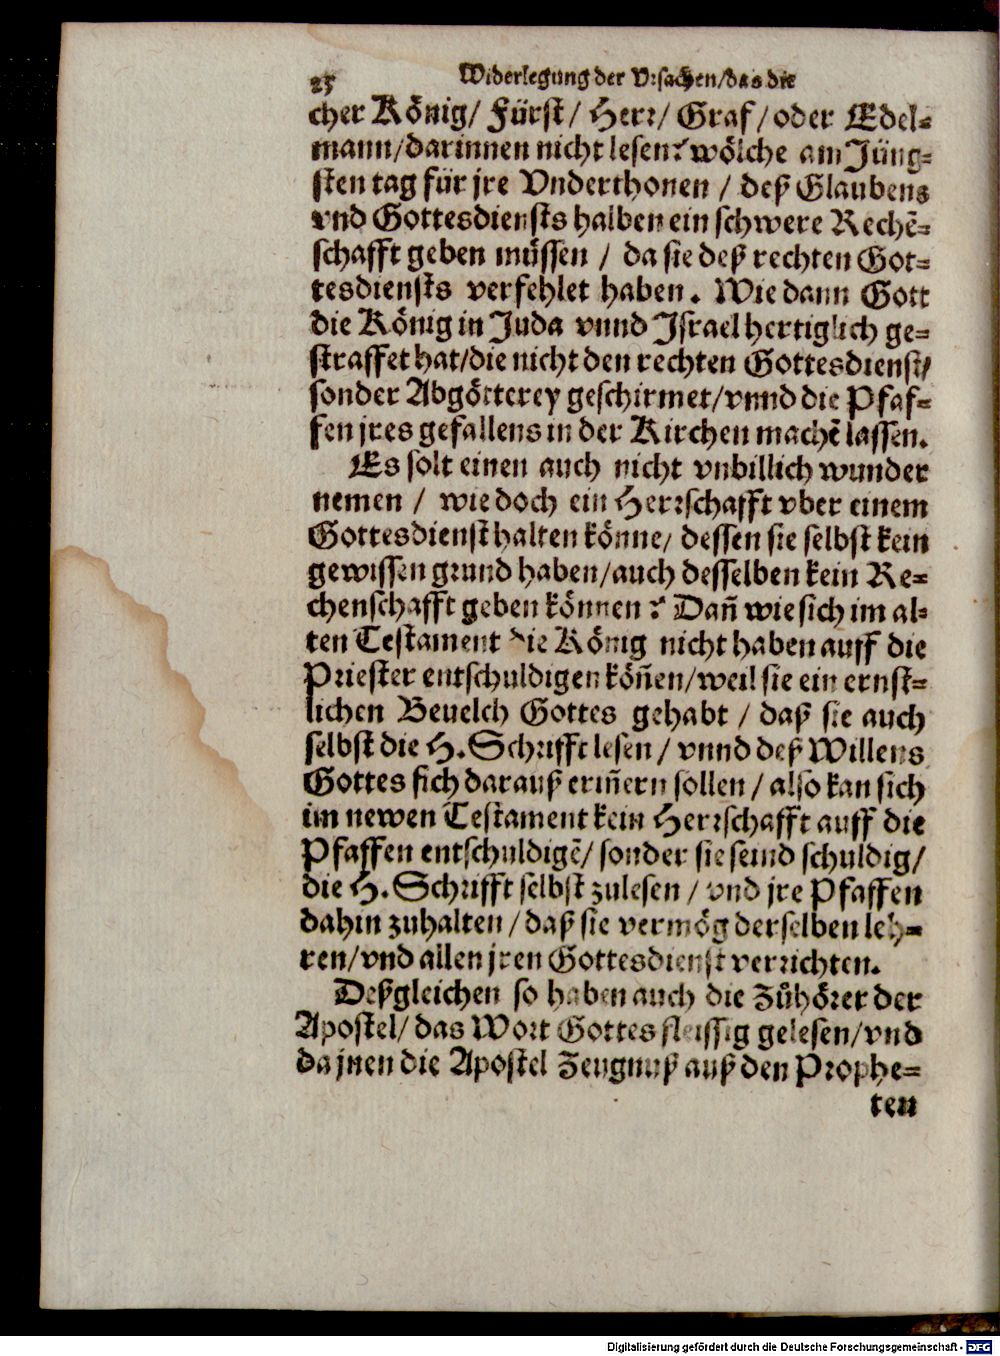 25 Widerlegung der Vrsachen/das die
cher König/ Fürst/ Herr/ Graf/ oder Edel-
mann/darinnen nicht lesen? wölche am Jüng-
sten tag für jre Vnderthonen / deß Glaubens
vnd Gottesdiensts halben ein schwere Rechē-
schafft geben müssen / da sie deß rechten Got-
tesdiensts verfehlet haben. Wie dann Gott
die König in Juda vnnd Jsrael hertiglich ge-
straffet hat/die nicht den rechten Gottesdienst/
sonder Abgötterey geschirmet/vnnd die Pfaf-
fen jres gefallens in der Kirchen machē lassen.
Es solt einen auch nicht vnbillich wunder
nemen / wie doch ein Herrschafft vber einem
Gottesdienst halten könne/ dessen sie selbst kein
gewissen grund haben/auch desselben kein Re-
chenschafft geben können? Dañ wie sich im al-
ten Testament die König nicht haben auff die
Priester entschuldigen köñen/weil sie ein ernst-
lichen Beuelch Gottes gehabt / daß sie auch
selbst die H. Schrifft lesen / vnnd deß Willens
Gottes sich darauß eriñern sollen / also kan sich
im newen Testament kein Herrschafft auff die
Pfaffen entschuldigē/ sonder sie seind schuldig/
die H. Schrifft selbst zulesen / vnd jre Pfaffen
dahin zuhalten / daß sie vermög derselben leh-
ren/vnd allen jren Gottesdienst verrichten.
Deßgleichen so haben auch die Zůhörer der
Apostel/ das Wort Gottes fleissig gelesen/vnd
da jnen die Apostel Zeugnuß auß den Prophe-
ten
Digitalisierung gefördert durch die Deutsche Forschungsgemeinschaft - DFG